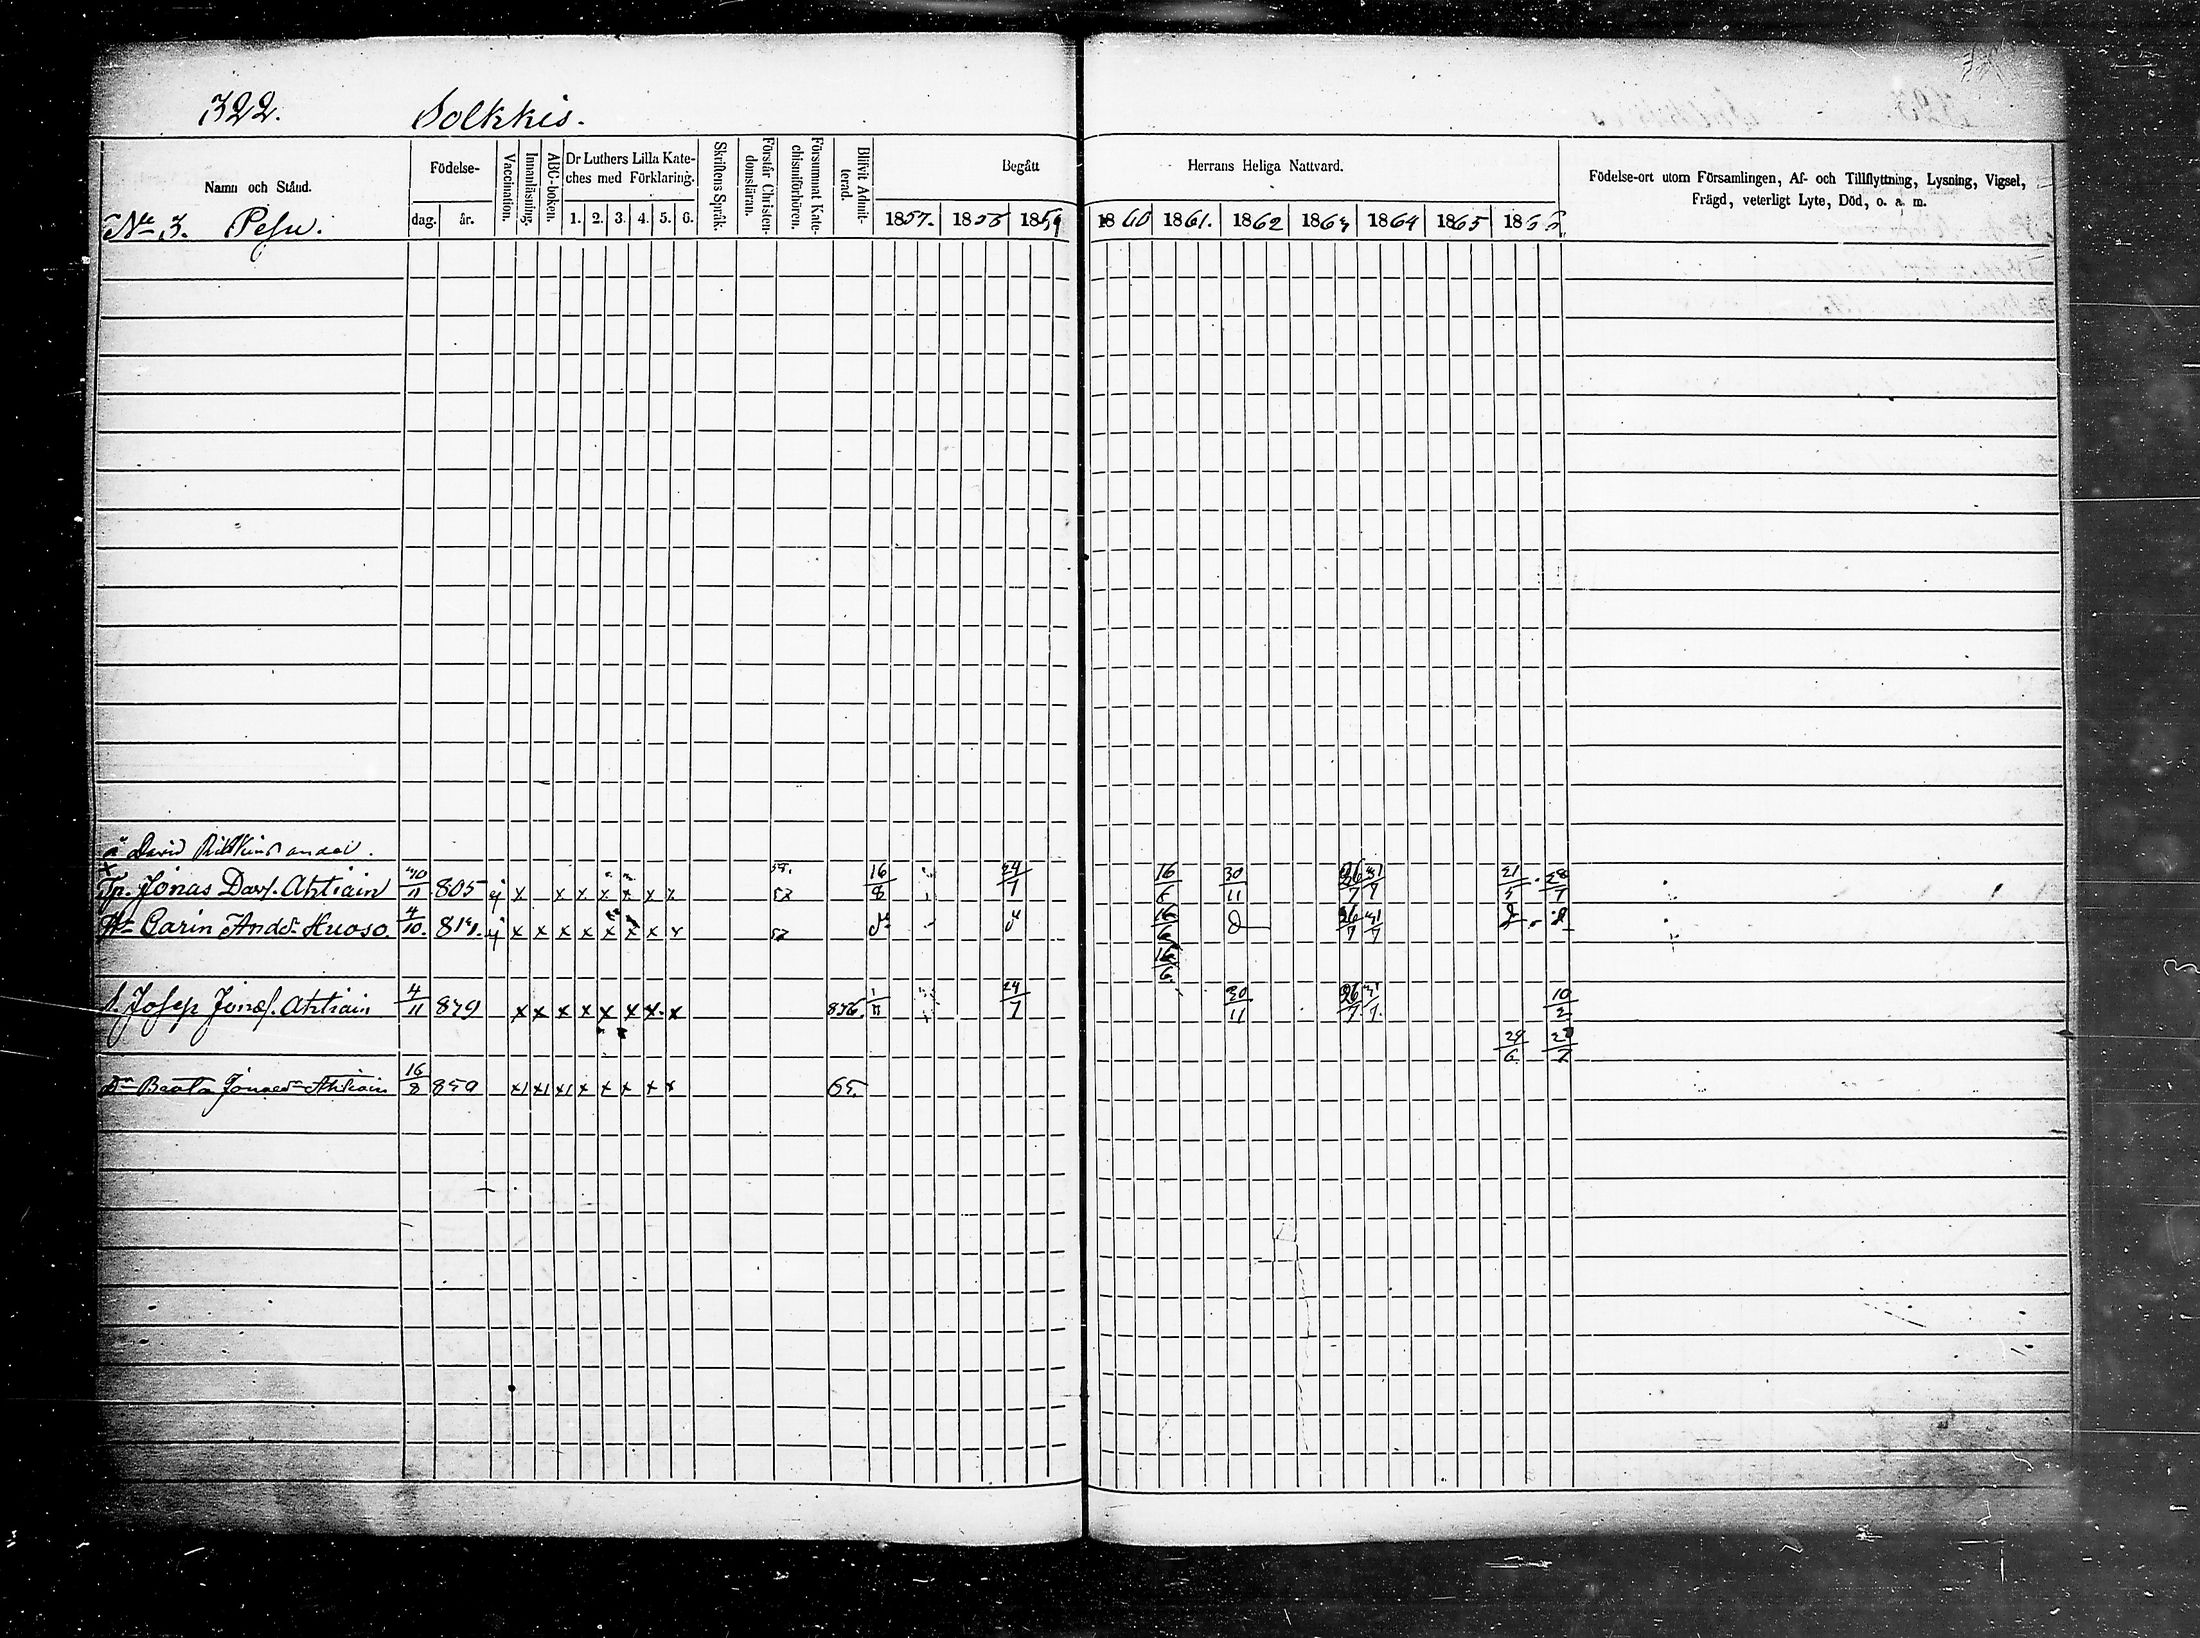 322. Solkkis.
Namn och Stånd.
No 3. Pesu.
Födelse-
dag. år.
Vaccination.
Innanläsning.
ABC-boken.
Dr Luthers Lilla Kate-
ches med Förklaring.
1. 2. 3. 4. 5. 6.
Skriftens Språk.
Förstår Christen-
domsläran.
Försummat Kate-
chismiförhören.
Blifvit Admit-
terad.
Begått Herrans Heliga Nattvard.
1857. 1858 1859 1860 1861. 1862 1863 1864 1865 1866
Födelse-ort utom Församlingen, Af- och Tillflyttning, Lysning, Vigsel,
Frägd, veterligt Lyte, Död, o. a. m.
å David andel.
Jonas Davs. Ahtiain 30/11 805 ej x x x x x x x 57 16/8 24/7 16/6 30/11 26/7 31/7 21/5 28/7
Hu Carin Andsr Huoso. 4/10. 81 ej x x x x x x x x 57 16/6 26/7 31/7
16/6
S. Josep Jonas. Ahtiain 4/11 839 x x x x x x x x 856. 1/11 24/7 30/11 26/7 31/7 10/2
24/6 28/7
Dr Beata Jonaedr Ahtiain 16/8 850 x x x x x x x x 65.